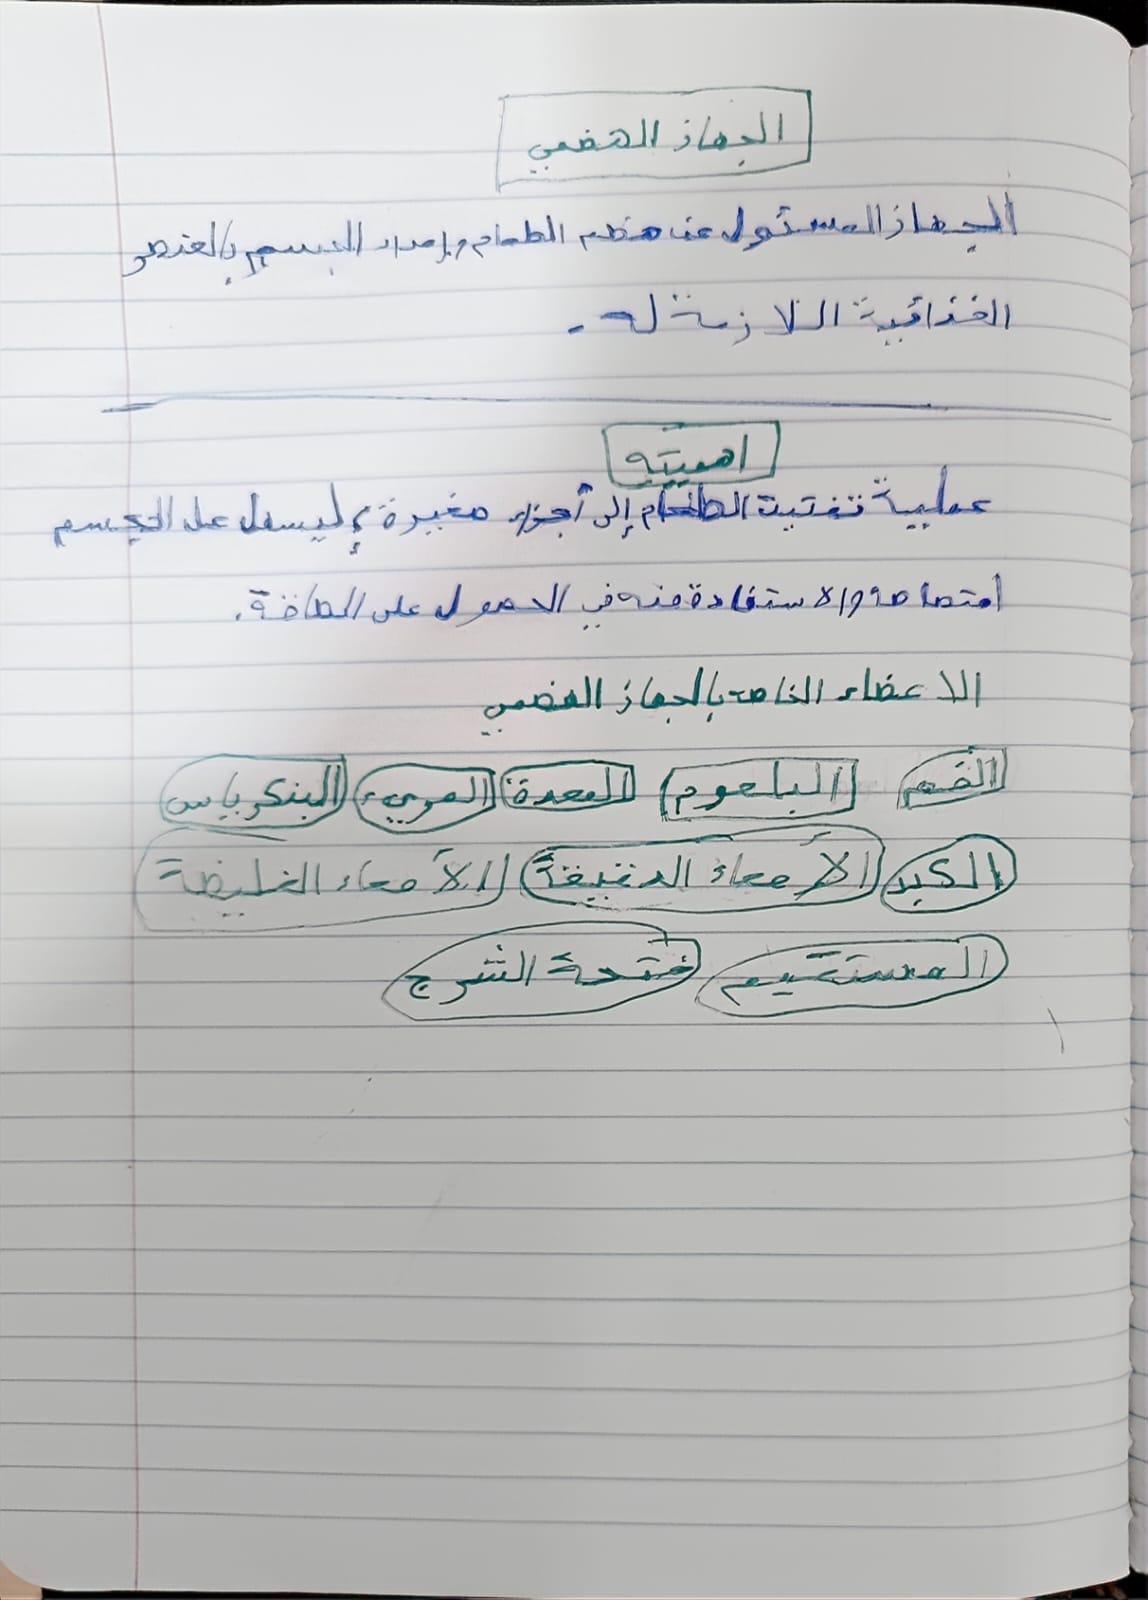 الجهاز الهضمي
الجهاز المسئول عن هضم الطعام وإمداد الجسم بالعنصر
الغذائية اللازمة له.
اهميته
عملية تفتيت الطعام إلى أجزاء صغيرة ليسهل على الجسم
امتصاصه والاستفادة منه في الحصول على الطاقة.
الاعضاء الخاصه بالجهاز الهضمي
الفم البلعوم المعدة المريء البنكرياس
الكبد الأمعاء الدقيقة الأمعاء الغليظة
المستقيم فتحة الشرج